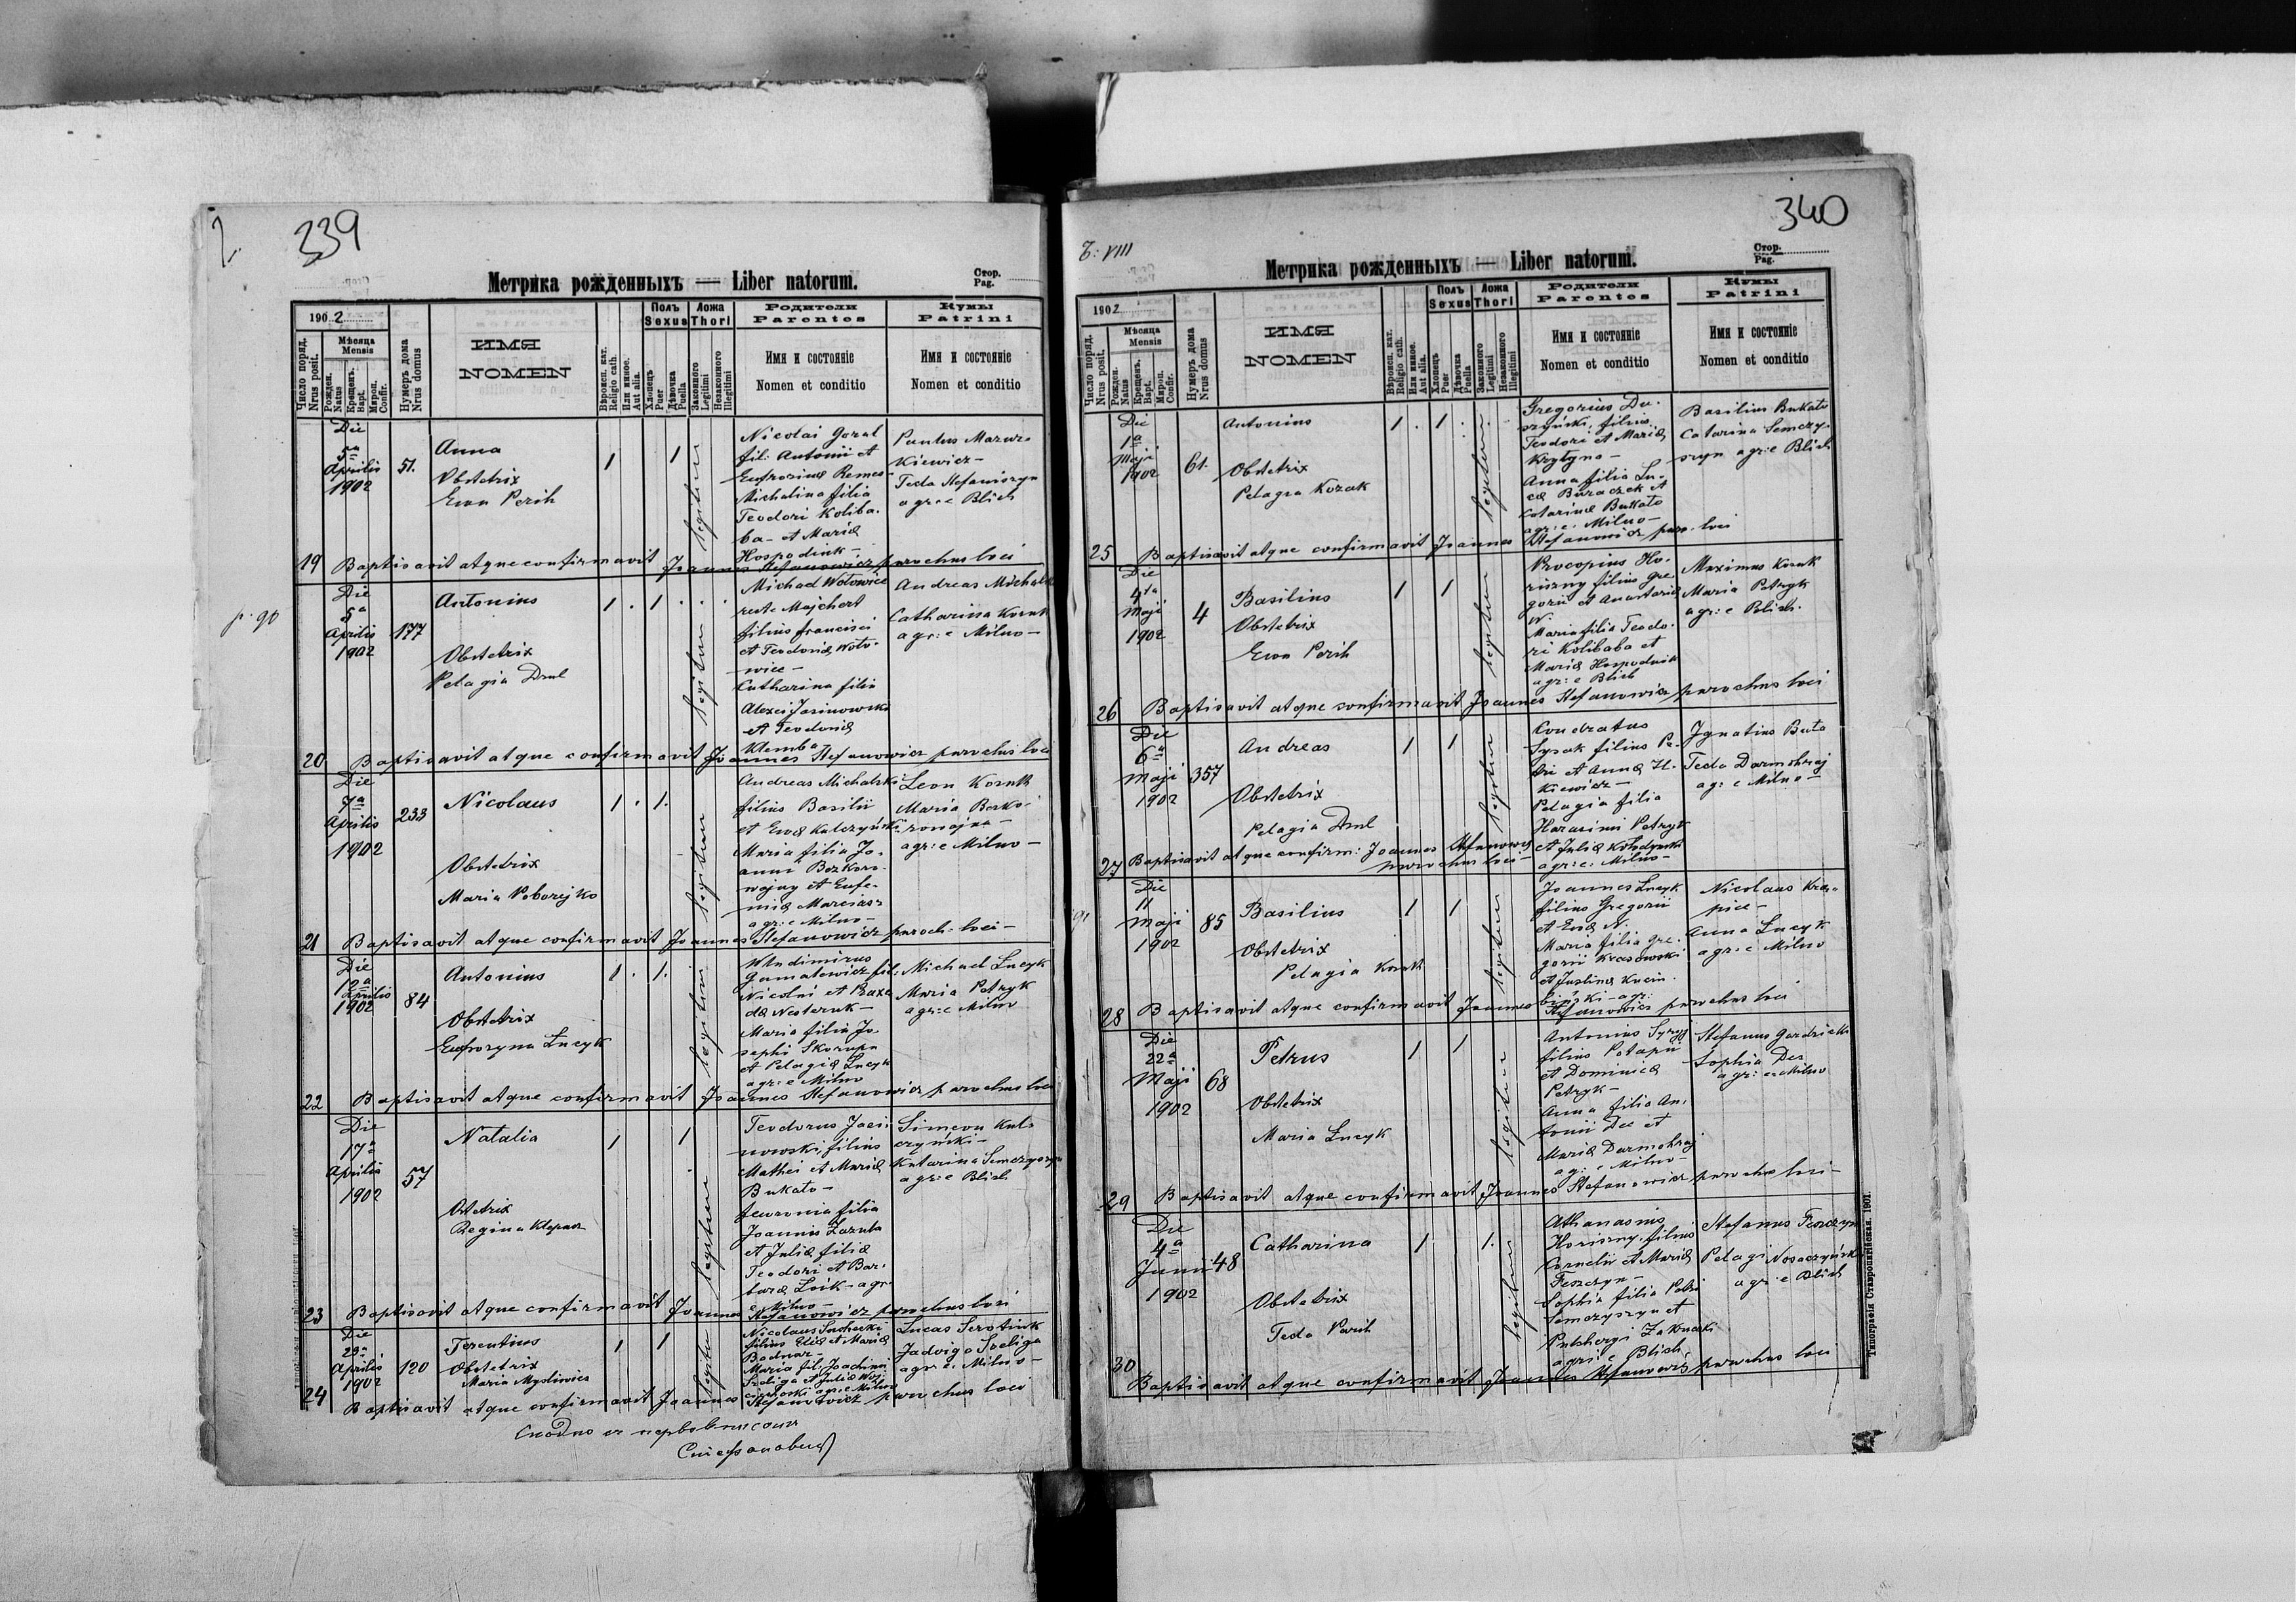 339
Метрика рожденныхъ — Liber natorum.
Стор.
Pag.
1902
Число поряд.
Nrus posit.
Мѣсяца
Mensis
Рожден.
Natus
Крещенъ.
Bapt.
Мироп.
Confir.
Нумеръ дома
Nrus domus
ИМЯ
NOMEN
Вѣроисп. кат.
Religio cath.
Или инное.
Aut alia.
Полъ
Sexus
Хлопецъ
Puer
Дѣвочка
Puella
Ложа
Thori
Законного
Legitimi
Незаконного
Illegitimi
Родители
Parentes
Имя и состоянie
Nomen et conditio
Кумы
Patrini
Имя и состоянie
Nomen et conditio
Die
5a
Aprilis
1902
51.
Anna
Obstetrix
Ewa Perih
1
1
legitimi
Nicolai Goral
fil: Antonii et
Eufrosinæ Remes-
Michalina filia
Teodori Koliba-
ba- et Mariæ
Hospodink-
Paulus Mazur-
kiewicz-
Teda Stefaniszyn
agr:e Blich
19 Baptisavit atque confirmavit Joannes Stefanowicz parochus loci
p. 90
Die
5a
Aprilis
1902
177
Antonius
Obstetrix
Pelagia Dml
1 . 1 . .
legitimi
Michael Wotowiec
recte Majchert
filius Francisci
et Teodoriæ Woto-
wiec-
Catharina filia
Alexei Jasinowski
et Teodoriæ
Klemba
Andreas Michalski
Catharina Kosuk
agr:e Milno-
20 Baptisavit atque confirmavit Joannes Stefanowicz parochus loci
Die
7a
Aprilis
1902
233
Nicolaus
Obstetrix
Maria Poborejko
1 . 1.
legitimi
Andreas Michalski
filius Basilii
et Evæ Kulczyński
Maria filia Jo-
anni Bezkoro-
wajny et Eufe-
miæ Marcias-
agr:e Milno-
Leon Kosuk
Maria Besko-
rowajna-
agr:e Milno-
21 Baptisavit atque confirmavit Joannes Stefanowicz paroch. loci-
Die
12a
Aprilis
1902
84
Antonius
Obstetrix
Eufrozyna Łucyk
1 . 1.
legitimi
Wladimirus
Gamalewicz fil:
Nicolai et Praxe
dæ Nesteruk-
Maria filia Jo-
sephi Skorupa
et Pelagiæ Łucyk
agr:e Milno
Michael Łucyk
Maria Petryk
agr:e Milno
22 Baptisavit atque confirmavit Joannes Stefanowicz parochus loci
Die
17a
Aprilis
1902
57
Natalia
Obstetrix
Regina Klepacz
1
1
legitimi
Teodorus Jasi-
nowski, filius
Mathei et Mariæ
Bukato-
Fewronia filia
Joannis Zaruba
et Juliæ filiæ
Teodori et Bar-
baræ Loik- agr:
e Milno-
Simeon Kul-
czyński-
Katarina Semczyszyn
agr:e Blich
23 Baptisavit atque confirmavit Joannes Stefanowicz parochus loci
Die
29a
Aprilis
1902
120
Terentius
Obstetrix
Maria Mysliwiec
1
1
legitimi
Nicolaus Suchecki
filius Eliæ et Mariæ
Bodnar-
Maria fil: Joachimi
Szeliga et Juliæ Woj-
ciechoski agr:e Milno
Lucas Serotiuk
Jadviga Szeliga
agr:e. Milno-
24 Baptisavit atque confirmavit Joannes Stefanowicz parochus loci
340
Т: VIII
Метрика рожденныхъ — Liber natorum.
Стор.
Pag.
1902
Число поряд.
Nrus posit.
Мѣсяца
Mensis
Рожден.
Natus
Крещенъ.
Bapt.
Мироп.
Confir.
Нумеръ дома
Nrus domus
ИМЯ
NOMEN
Вѣроисп. кат.
Religio cath.
Или инное.
Aut alia.
Полъ
Sexus
Хлопецъ
Puer
Дѣвочка
Puella
Ложа
Thori
Законного
Legitimi
Незаконного
Illegitimi
Родители
Parentes
Имя и состоянie
Nomen et conditio
Кумы
Patrini
Имя и состоянie
Nomen et conditio
Die
1a
Maji
1902
61.
Antonius
Obstetrix
Pelagia Kozak
1 . 1 .
legitimi
Gregorius Du-
szyński, filius
Teodori et Mariæ
Krytyna-
Anna filia Lu-
cæ Buraczek et
Catarinæ Bukato
agr:e. Milno-
Basilius Bukato
Catarina Semczy-
szyn agr:e Blich
25 Baptisavit atque confirmavit Joannes Stefanowicz paro. loci
Die
4ta
Maji
1902
4
Basilius
Obstetrix
Ewa Perih
1
1
legitimi
Procopius Ho-
riszny filius Gre-
gorii et Anastasiæ
N.
Maria filia Teodo-
ri Kolibaba et
Mariæ Hospodnik
agr:e Blich
Maximus Kosuk
Maria Petryk
agr:e Blich.
26 Baptisavit atque confirmavit Joannes Stefanowicz parochus loci
Die
6a
Maji
1902
357
Andreas
Obstetrix
Pelagia Dml
1
1
legitimi
Condratus
Sysak filius Pe-
tri et Annæ H-
kiewicz-
Pelagia filia
Harasimi Petryk
et Juliæ Kołodyński
agr:e. Milno-
Ignatius Buta
Teda Darmohraj
agr:e Milno-
27 Baptisavit atque confirm: Joannes Stefanowicz
parochus loci-
Die
11
Maji
1902
85
Basilius
Obstetrix
Pelagia Kosuk
1
1
legitimi
Joannes Łucyk
filius Gregorii
et Evæ N.
Maria filia Gre-
gorii Krasowski
et Justinæ Kucin-
biński- agr:
Nicolaus Kra-
piec-
Anna Łucyk
agr:e Milno
28 Baptisavit atque confirmavit Joannes Stefanowicz parochus loci
Die
22a
Maji
1902
68
Petrus
Obstetrix
Maria Łucyk
1
1
legitimi
Antonius Syryj
filius Potapii
et Dominicæ
Petryk-
Anna filia An-
tonii Dec et
Mariæ Darmohraj
agr:e Milno-
Stefanus Gardzicki
Sophia Dec
agr:e Milno
29 Baptisavit atque confirmavit Joannes Stefanowicz parochus loci-
Die
4a
Junii
1902
48
Catharina
Obstetrix
Teda Perih
1
1.
legitimi
Athanasius
Horiszny filius
Cornelii et Mariæ
Feszczyn-
Sophia filia Petri
Semczyszyn et
Pulchergi Zakucki
agr:e Blich
Stefanus Feszczyn
Pelagi Nosaczyński
agr:e Blich
30 Baptisavit atque confirmavit Joannes Stefanowicz parochus loci
Типографія Ставропигійская. 1901.